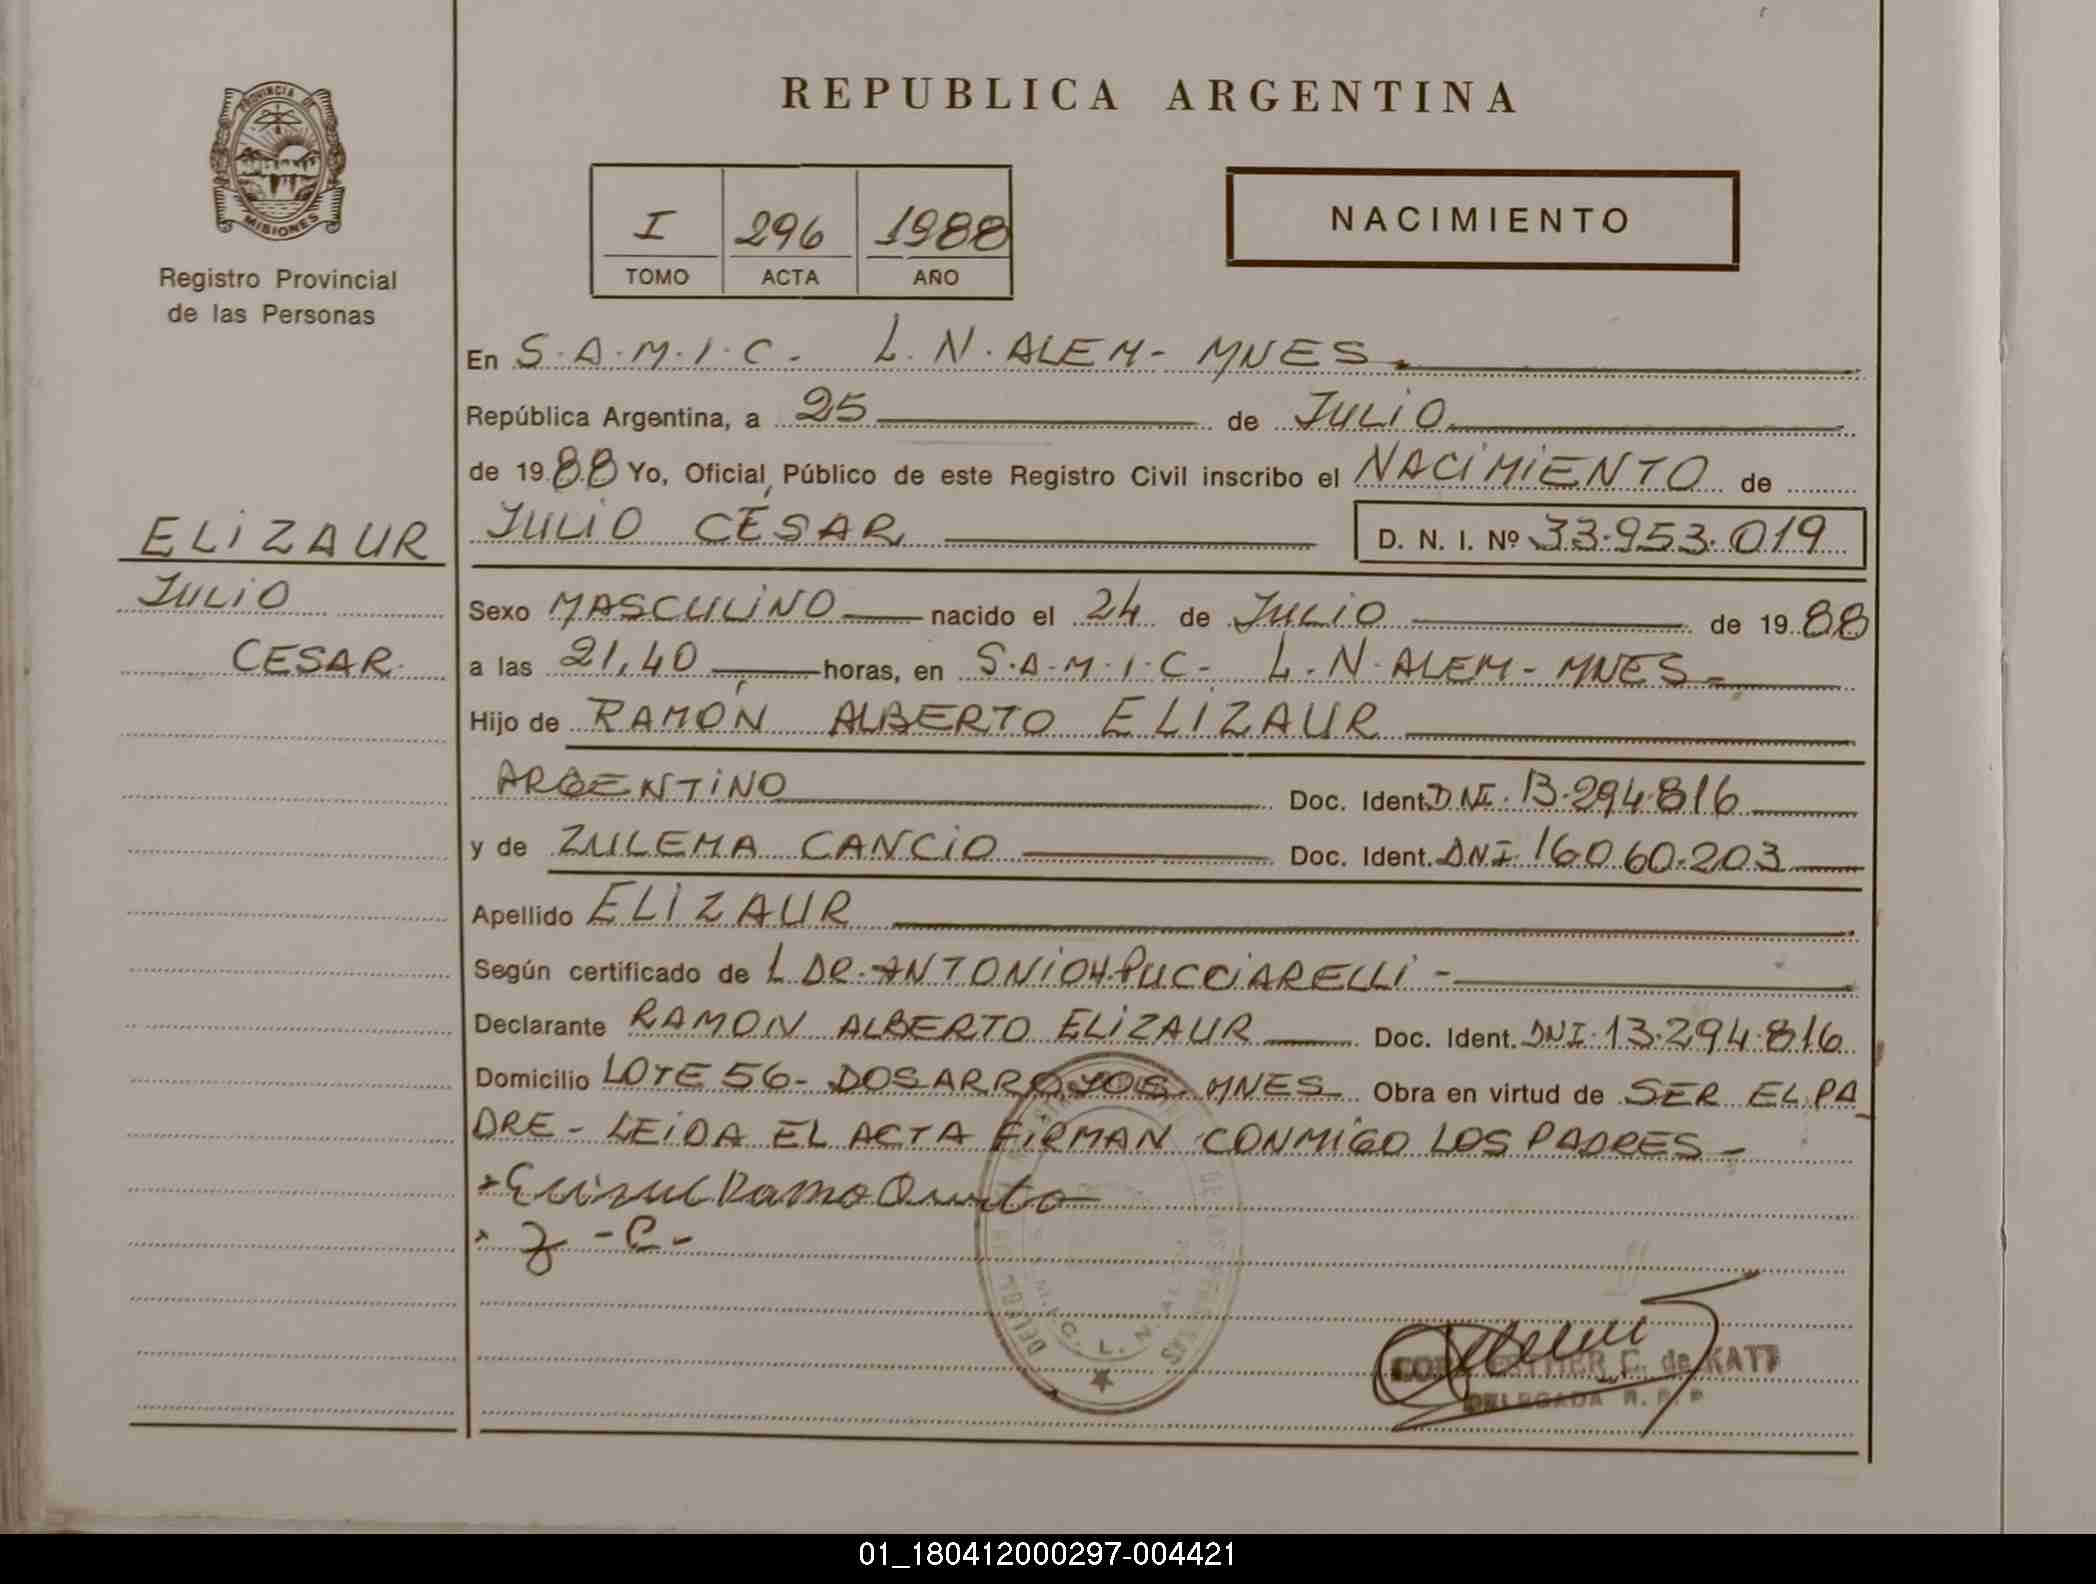 REPUBLICA ARGENTINA
PROVINCIA DE
MISIONES
Registro Provincial
de las Personas
I 296 1988
TOMO ACTA AÑO
NACIMIENTO
En S.A.M.I.C. L.N.ALEM- MNES.
República Argentina, a 25 de JULIO
de 1988 Yo, Oficial Público de este Registro Civil inscribo el NACIMIENTO de
JULIO CESAR D. N. I. Nº 33.953.019
ELIZAUR
JULIO
CESAR.
Sexo MASCULINO nacido el 24 de JULIO de 1988
a las 21,40 horas, en S.A.M.I.C- L.N.ALEM- MNES-
Hijo de RAMÓN ALBERTO ELIZAUR
ARGENTINO Doc. Ident. DNI. 13.294.816
y de ZULEMA CANCIO Doc. Ident. DNI. 16060.203
Apellido ELIZAUR
Según certificado de L DR. ANTONIO H. PUCCIARELLI -
Declarante RAMON ALBERTO ELIZAUR Doc. Ident. DNI. 13.294.816
Domicilio LOTE 56- DOS ARROYOS, MNES Obra en virtud de SER EL PA
DRE - LEIDA EL ACTA FIRMAN CONMIGO LOS PADRES-
Z - C -
L. N.
de KATT
DELEGADA R. P. P
01_180412000297-004421